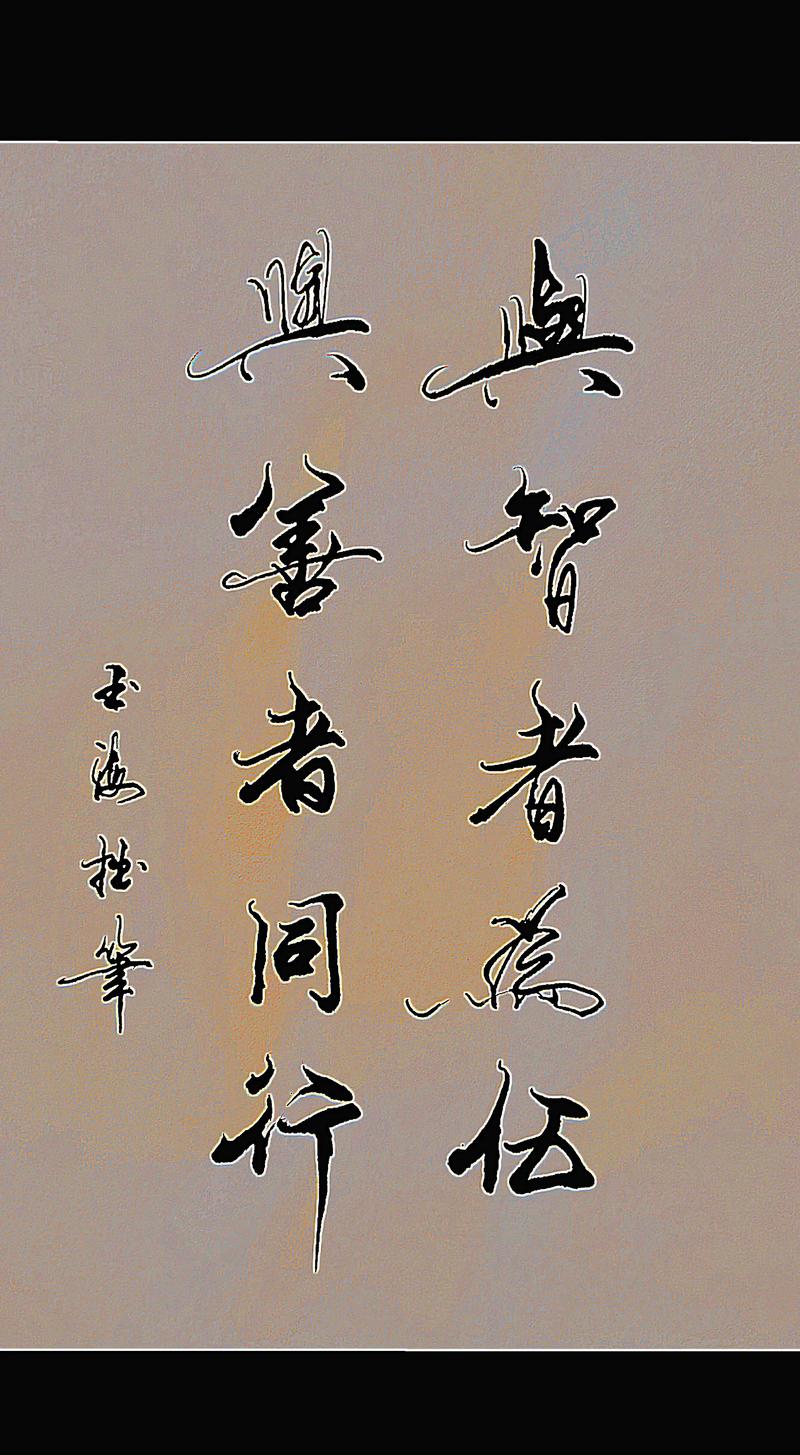 與智者為伍
與善者同行
玉海拙筆